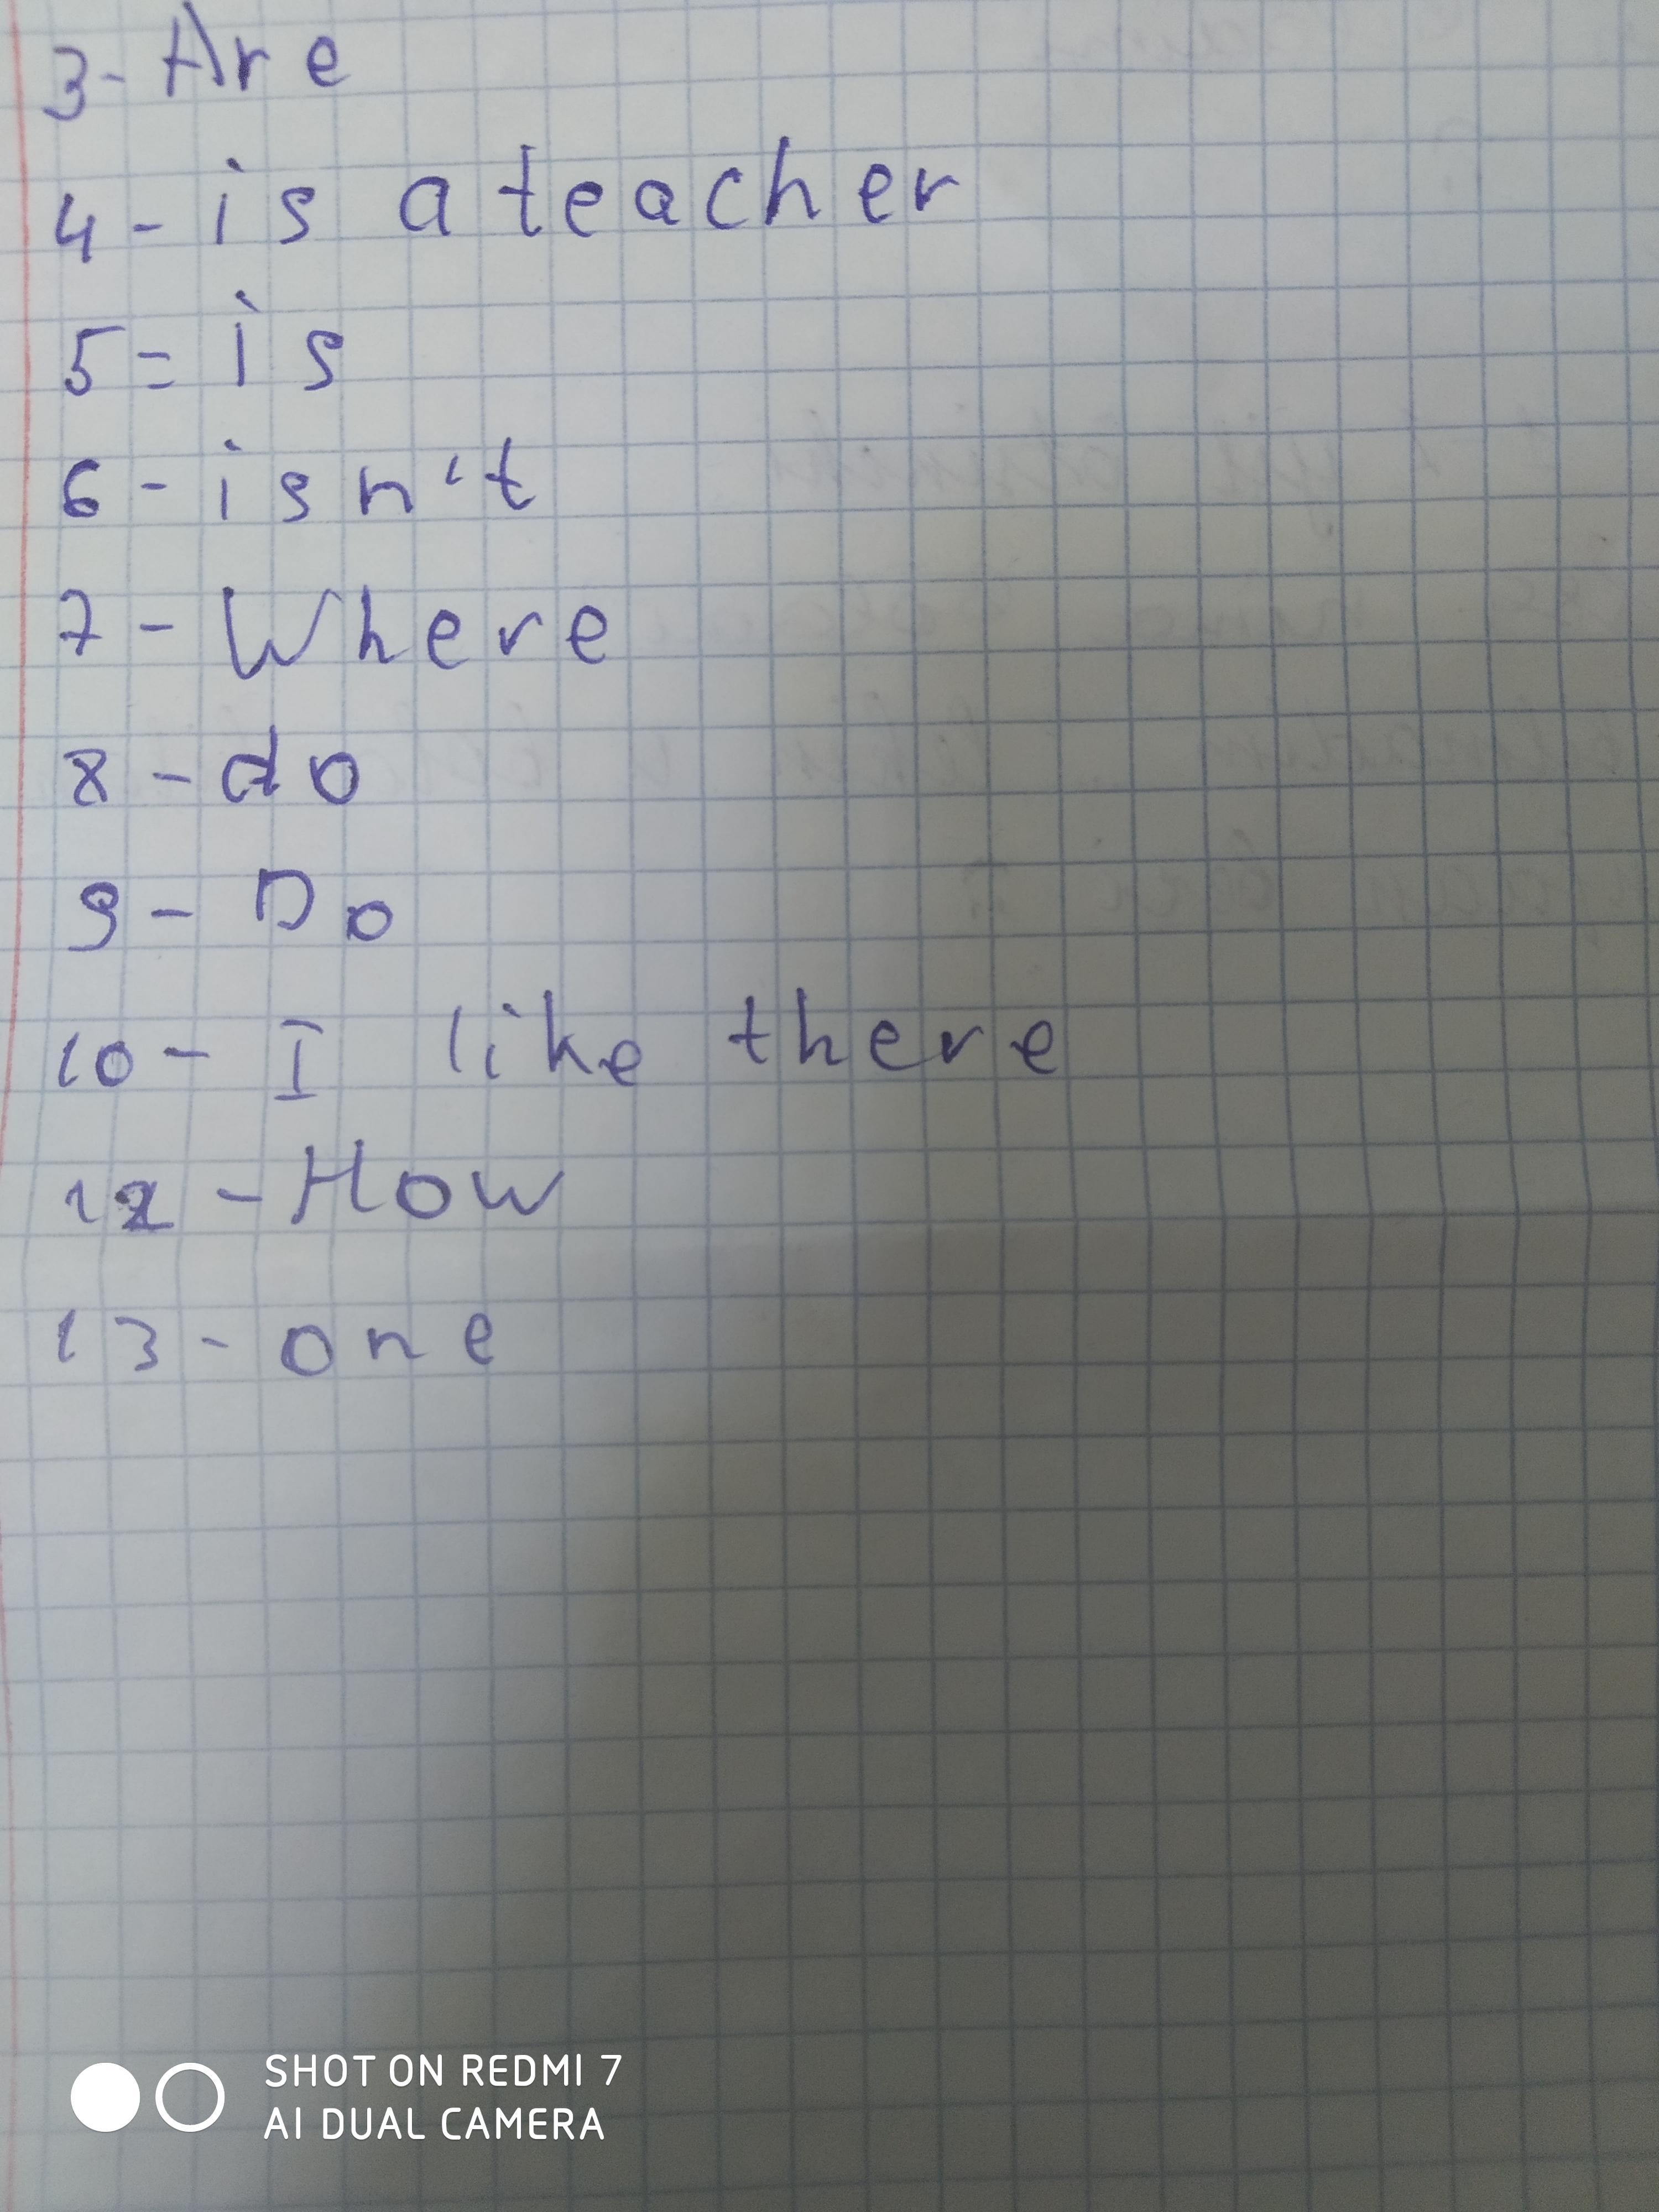 3- Are
4 - is a teacher
5 = is
6 - isn't
7 - Where
8 - do
9 - Do
10 - I like there
12 - How
13 - one
SHOT ON REDMI 7
AI DUAL CAMERA